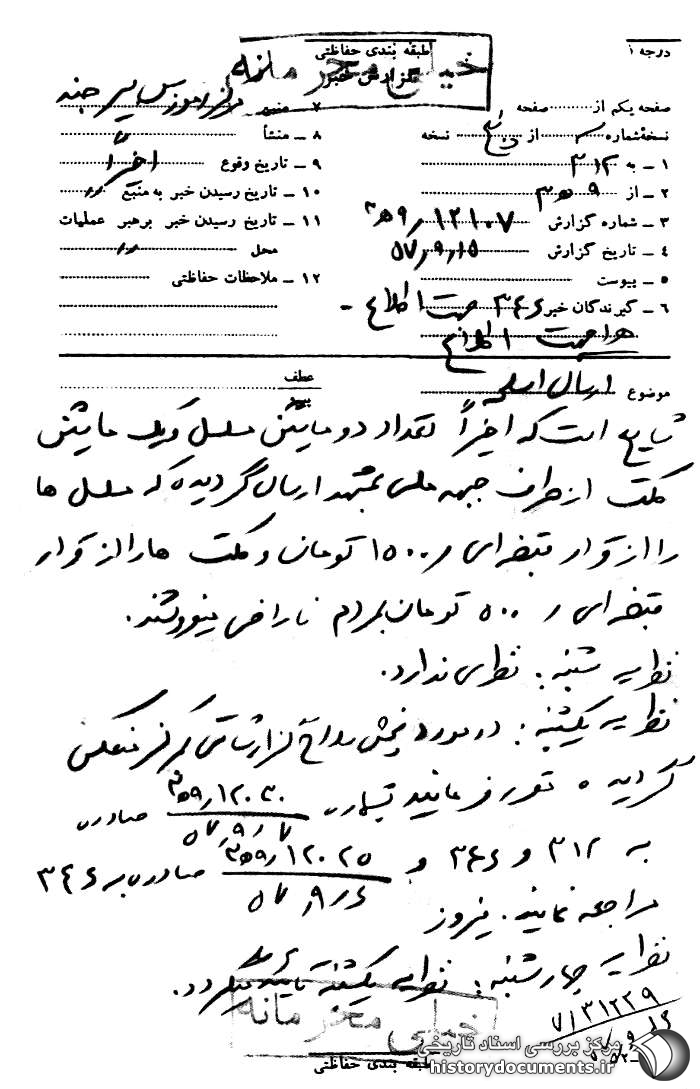 درجه ۱
طبقه بندی حفاظتی
خیلی محرمانه
گزارش خبر
صفحه یکم از صفحه
نسخهٔ شماره از نسخه
۱ – به ۳۱۲
۲ – از ۹ ه‍ ۳
۳ – شماره گزارش ۱۲۱۰۷ / ۹ ه‍ ۳
۴ – تاریخ گزارش ۵۷٫۹٫۱۵
۵ – پیوست
۶ – گیرندگان خبر ۳۴۶ جهت اطلاع -
جهت اطلاع
۷ – منبع
۸ – منشأ
۹ – تاریخ وقوع اخیراً
۱۰ – تاریخ رسیدن خبر به منبع //
۱۱ – تاریخ رسیدن خبر برهبر عملیات
محل //
۱۲ – ملاحظات حفاظتی
موضوع ارسال اسلحه
عطف
شایع است که اخیراً تعداد دو ماشین مسلسل و یک ماشین
کلت از طرف جبهه ملی بمشهد ارسال گردیده که مسلسل ها
را از قرار قبضه‌ای ۱۵۰۰ تومان و کلت ها را از قرار
قبضه‌ای ۵۰۰ تومان بمردم ناراضی میفروشند.
نظریه شنبه : نظری ندارد.
نظریه یکشنبه : در مورد پخش سلاح گزارشاتی بمرکز منعکس
گردیده مقرر فرمایند بشماره ۱۲۰۳۰ / ۹ ه‍ ۳
۵۷٫۹٫۷ صادره
به ۳۱۲ و ۳۴۶ و ۱۲۰۲۵ / ۹ ه‍ ۳
۵۷٫۹٫۶ صادره به ۳۴۶
مراجعه نمایند. پیروز
نظریه چهارشنبه : نظریه یکشنبه تأیید میگردد.
خیلی محرمانه
طبقه بندی حفاظتی
۷/۳۱۲۲۹
مرکز بررسی اسناد تاریخی
historydocuments.ir